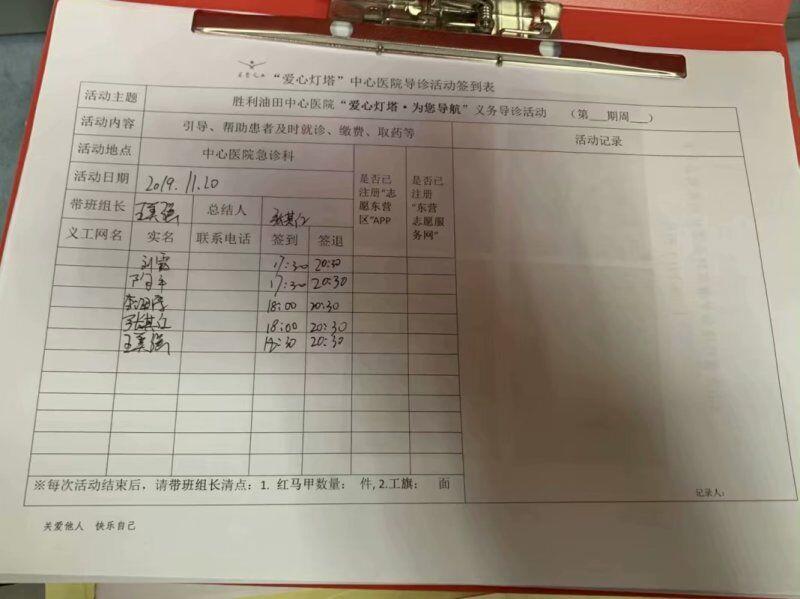 “爱心灯塔”中心医院导诊活动签到表
活动主题 胜利油田中心医院“爱心灯塔·为您导航”义务导诊活动 (第___期周___)
活动内容 引导、帮助患者及时就诊、缴费、取药等 活动记录
活动地点 中心医院急诊科 是否已注册“志愿东营区”APP 是否已注册“东营志愿服务网”
活动日期 2019.11.20
带班组长 王美强 总结人 张其仁
义工网名 实名 联系电话 签到 签退
刘雷 17:30 20:30
17:30 20:30
18:00 20:30
张其仁 18:00 20:30
王美强 20:30
※每次活动结束后，请带班组长清点：1. 红马甲数量： 件, 2.工旗： 面
记录人：
关爱他人 快乐自己